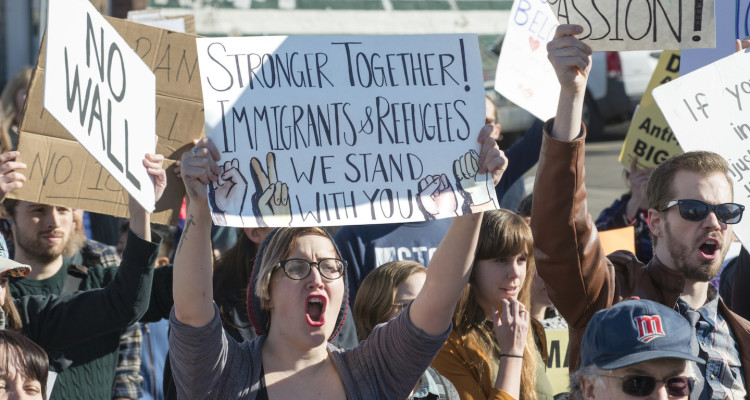 NO
WALL
NO
STRONGER TOGETHER!
IMMIGRANTS & REFUGEES
WE STAND
WITH YOU
ASSION!
IF YO
BIG
M